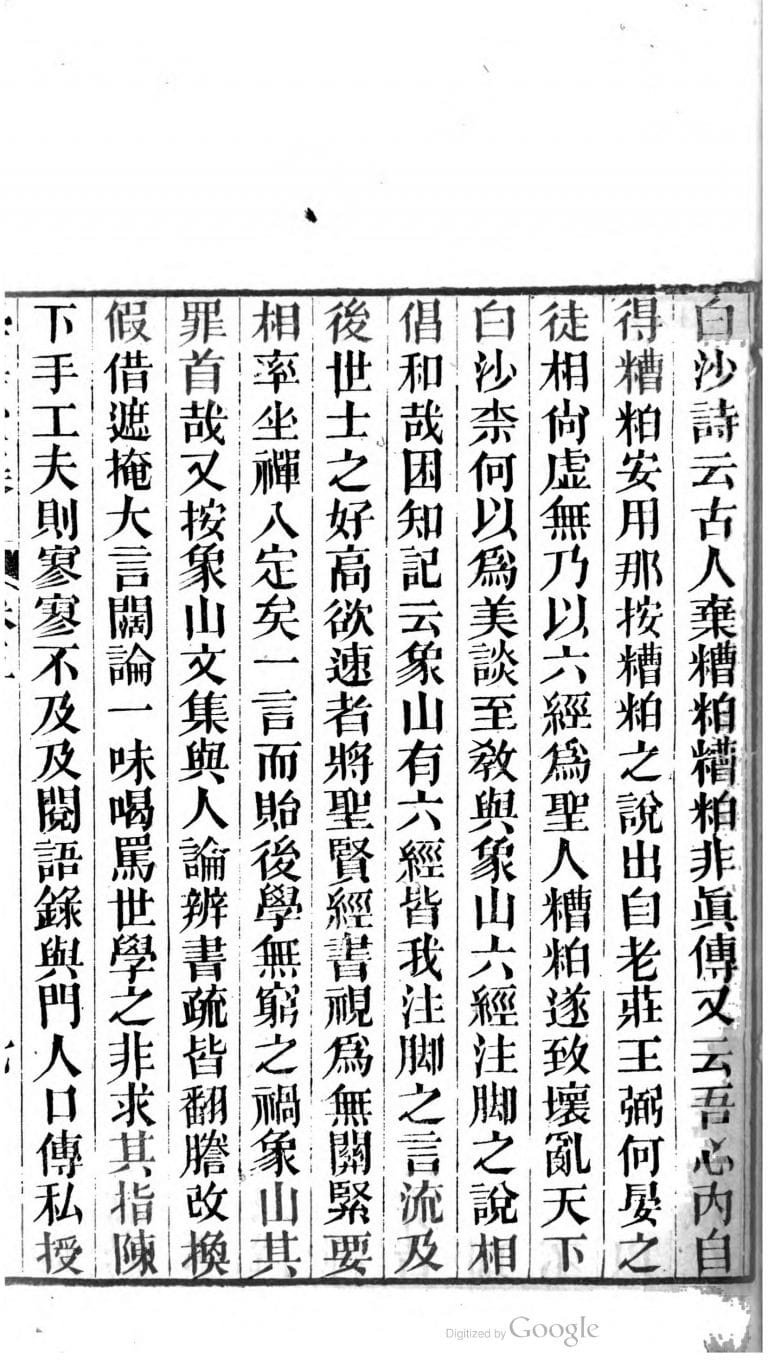 白沙詩云古人棄糟粕糟粕非眞傳又云吾心内自
得糟粕安用那按糟粕之說出自老莊王弼何晏之
徒相尙虛無乃以六經爲聖人糟粕遂致壞亂天下
白沙柰何以爲美談至敎與象山六經注脚之說相
倡和哉困知記云象山有六經皆我注脚之言流及
後世士之好高欲速者將聖賢經書視爲無關緊要
相率坐禪入定矣一言而貽後學無窮之禍象山其
罪首哉又按象山文集與人論辨書疏皆翻謄改換
假借遮掩大言闊論一味喝罵世學之非求其指陳
下手工夫則寥寥不及及閱語錄與門人口傳私授
Digitized by Google